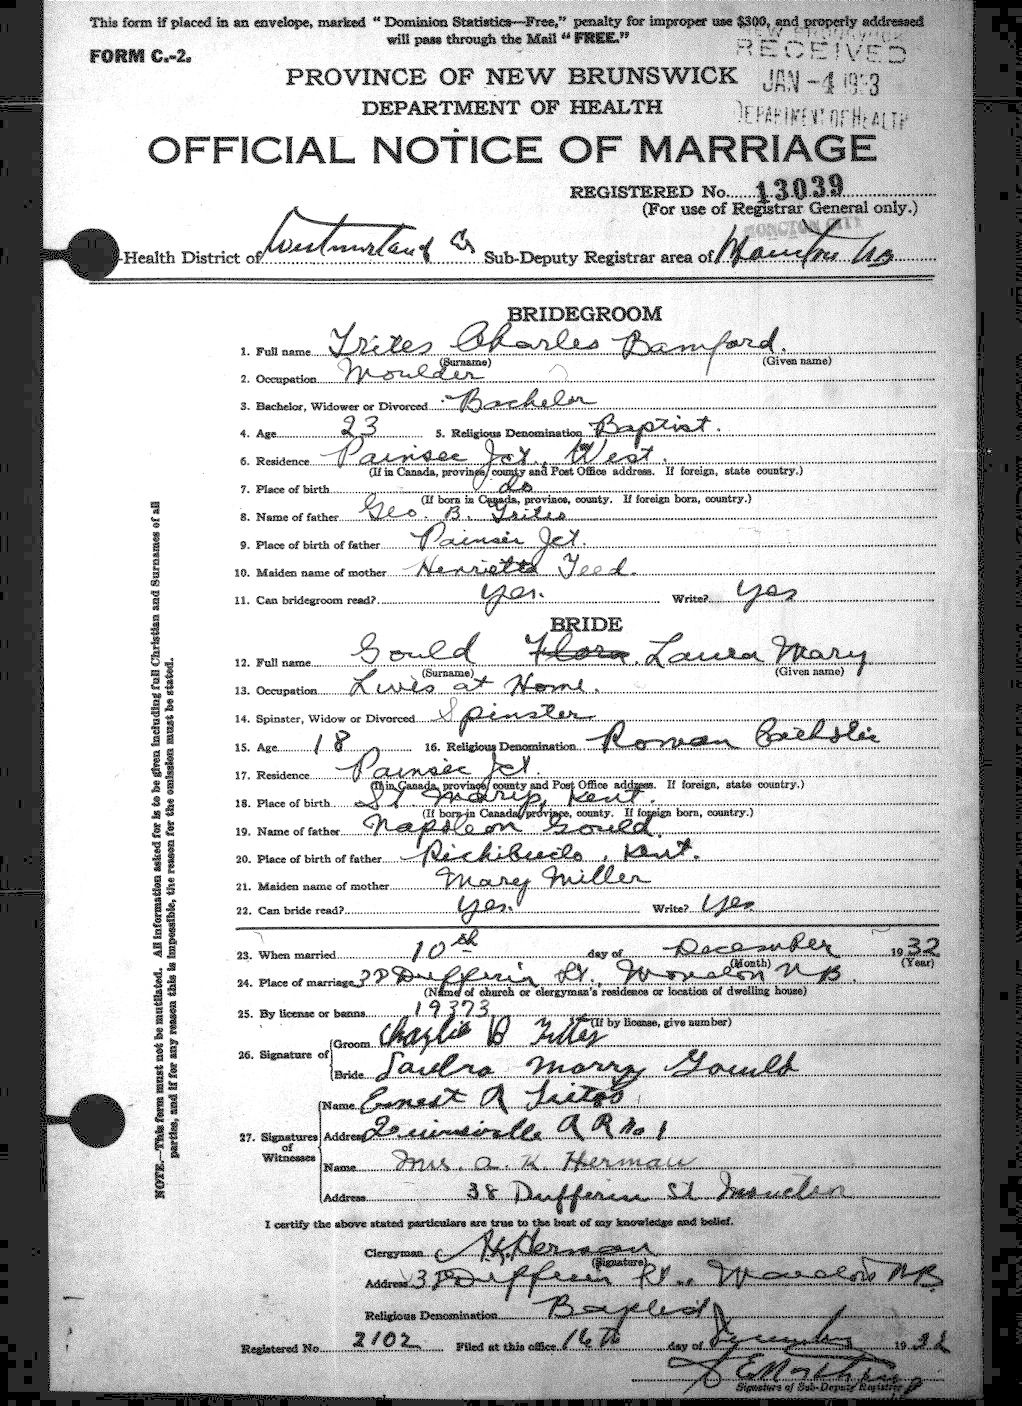 This form if placed in an envelope, marked "Dominion Statistics—Free," penalty for improper use $300, and properly addressed
will pass through the Mail "FREE."
FORM C.-2.
NEW BRUNSWICK
RECEIVED
JAN -4 1933
DEPARTMENT OF HEALTH
PROVINCE OF NEW BRUNSWICK
DEPARTMENT OF HEALTH
OFFICIAL NOTICE OF MARRIAGE
REGISTERED No. 13039
(For use of Registrar General only.)
MONCTON CITY
Health District of Westmorland Co Sub-Deputy Registrar area of Moncton NB
BRIDEGROOM
1. Full name Trites Charles Bamford.
(Surname) (Given name)
2. Occupation Moulder
3. Bachelor, Widower or Divorced Bachelor
4. Age 23 5. Religious Denomination Baptist.
6. Residence Painsec Jct. West.
(If in Canada, province, county and Post Office address. If foreign, state country.)
7. Place of birth do
(If born in Canada, province, county. If foreign born, country.)
8. Name of father Geo. B. Trites
9. Place of birth of father Painsec Jct.
10. Maiden name of mother Henrietta Teed.
11. Can bridegroom read? Yes. Write? Yes
BRIDE
12. Full name Gould Flora. Laura Mary
(Surname) (Given name)
13. Occupation Lives at Home.
14. Spinster, Widow or Divorced Spinster
15. Age 18 16. Religious Denomination Roman Catholic
17. Residence Painsec Jct.
(If in Canada, province, county and Post Office address. If foreign, state country.)
18. Place of birth St. Marys, Kent.
(If born in Canada, province, county. If foreign born, country.)
19. Name of father Napoleon Gould.
20. Place of birth of father Richibucto, Kent.
21. Maiden name of mother Mary Miller
22. Can bride read? Yes. Write? Yes
23. When married 10th day of December 1932
(Month) (Year)
24. Place of marriage 38 Dufferin St., Moncton NB.
(Name of church or clergyman's residence or location of dwelling house)
25. By license or banns 19373
(If by license, give number)
26. Signature of Groom Charlie B Trites
Bride Laura Marry Gould
27. Signatures of Witnesses
Name Ernest A Trites
Address R R No 1
Name Mrs. A. K. Herman
Address 38 Dufferin St Moncton
I certify the above stated particulars are true to the best of my knowledge and belief.
Clergyman A.K. Herman
(Signature)
Address 38 Dufferin St., Moncton NB.
Religious Denomination Baptist
Registered No. 2102 Filed at this office 16th day of December 1932
Signature of Sub-Deputy Registrar
NOTE.—This form must not be mutilated. All information asked for is to be given including full Christian and Surnames of all
parties, and if for any reason this is impossible, the reason for the omission must be stated.